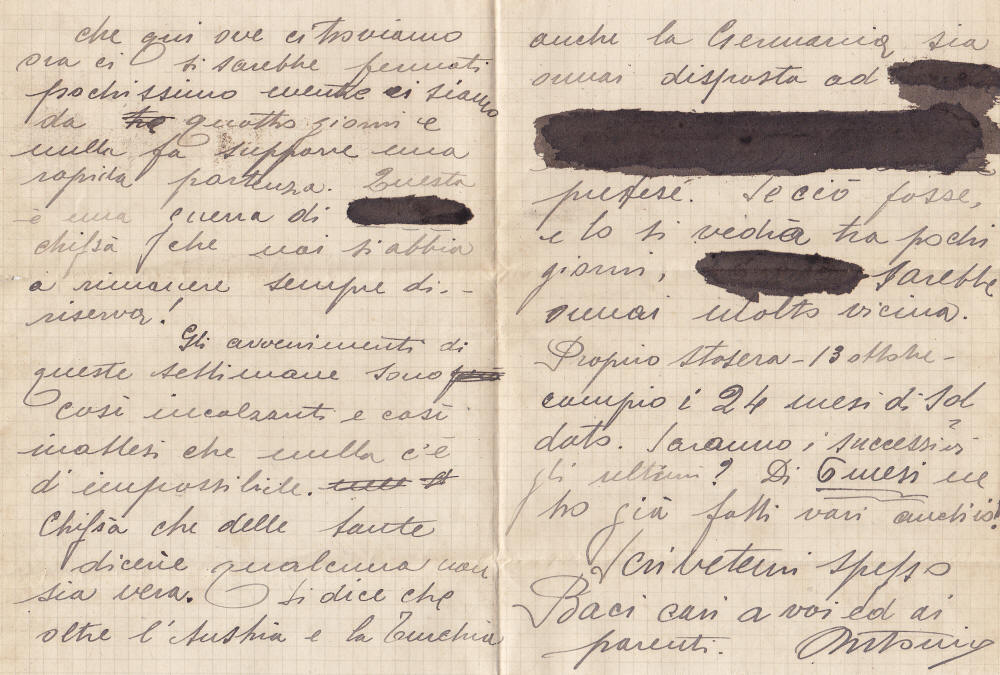 che qui ove ci troviamo
ora ci si sarebbe fermati
pochissimo mentre ci siamo
da tre quattro giorni e
nulla fa supporre una
rapida partenza. Questa
è una guerra di
chissà che noi si abbia
a rimanere sempre di --
riserva!
Gli avvenimenti di
queste settimane sono
così incalzanti e così
inattesi che nulla c'è
d'impossibile.
Chissà che delle tante
dicerie qualcuna non
sia vera. Si dice che
oltre l'Austria e la Turchia
anche la Germania sia
ormai disposta ad
pretese. Se ciò fosse,
e lo si vedrà tra pochi
giorni, sarebbe
ormai molto vicina.
Proprio stasera - 13 ottobre -
compio i 24 mesi di Sol
dato. Saranno i successivi
gli ultimi? Di 6 mesi ne
ho già fatti vari anch'io!
Scrivetemi spesso
Baci cari a voi ed ai
parenti. Antonio